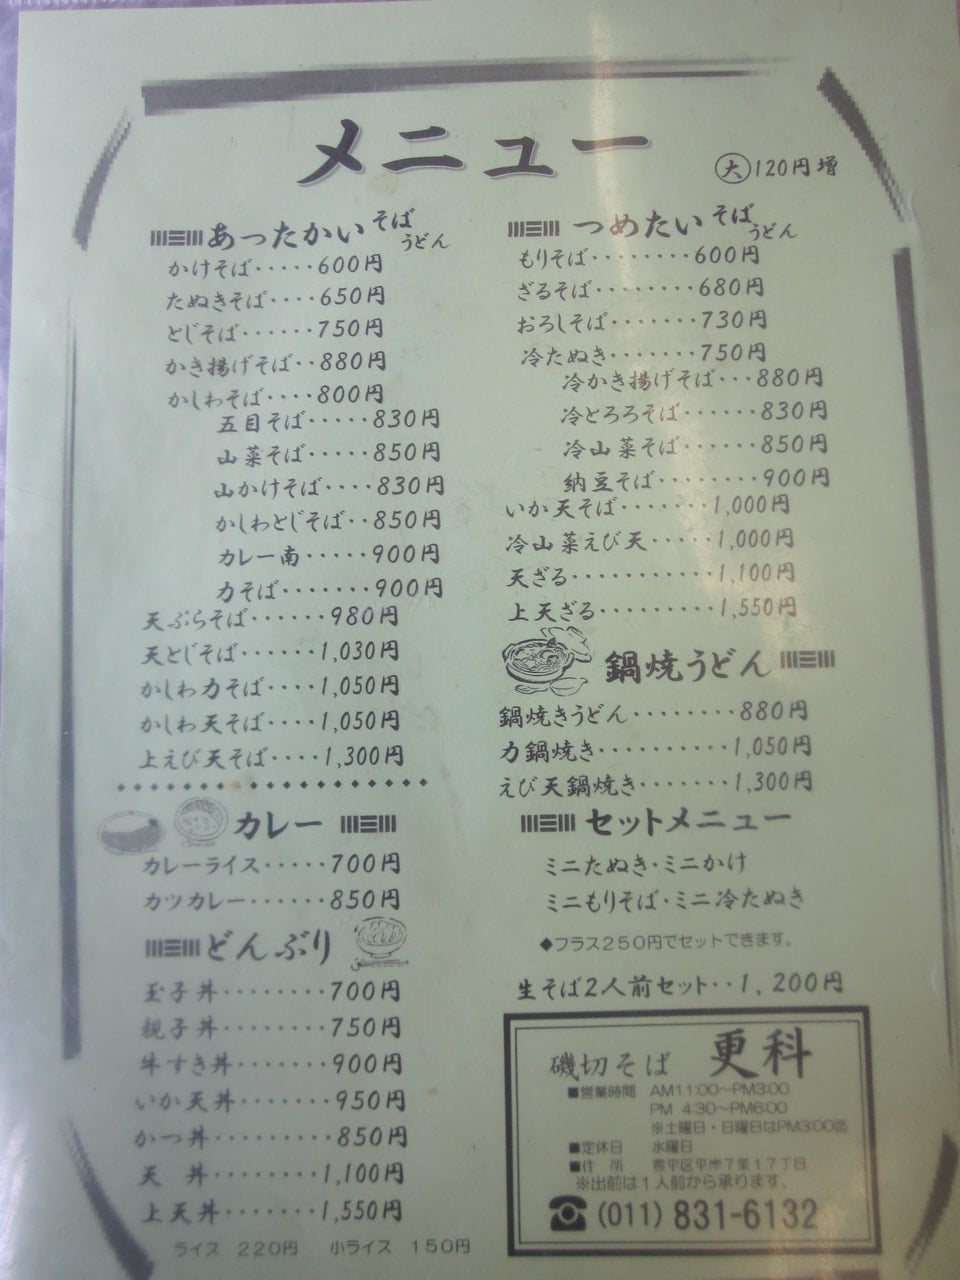 メニュー
大120円増
あったかいそばうどん
かけそば・・・・・600円
たぬきそば・・・・650円
とじそば・・・・・・750円
かき揚げそば・・880円
かしわそば・・・・800円
五目そば・・・・・830円
山菜そば・・・・・850円
山かけそば・・・・830円
かしわとじそば・・850円
カレー南・・・・・900円
力そば・・・・・・・900円
天ぷらそば・・・・・・980円
天とじそば・・・・・1,030円
かしわ力そば・・・・1,050円
かしわ天そば・・・・1,050円
上えび天そば・・・・1,300円
カレー
カレーライス・・・・・700円
カツカレー・・・・・・850円
どんぶり
玉子丼・・・・・・・・700円
親子丼・・・・・・・・750円
牛すき丼・・・・・・・900円
いか天丼・・・・・・・950円
かつ丼・・・・・・・・・850円
天 丼・・・・・・・1,100円
上天丼・・・・・・・1,550円
ライス 220円 小ライス 150円
つめたいそばうどん
もりそば・・・・・・・・600円
ざるそば・・・・・・・・680円
おろしそば・・・・・・・730円
冷たぬき・・・・・・・750円
冷かき揚げそば・・・880円
冷とろろそば・・・・・・830円
冷山菜そば・・・・・・850円
納豆そば・・・・・・・900円
いか天そば・・・・・・1,000円
冷山菜えび天・・・・・1,000円
天ざる・・・・・・・・・・・1,100円
上天ざる・・・・・・・・・1,550円
鍋焼うどん
鍋焼きうどん・・・・・・・・880円
力鍋焼き・・・・・・・・・・1,050円
えび天鍋焼き・・・・・・・1,300円
セットメニュー
ミニたぬき・ミニかけ
ミニもりそば・ミニ冷たぬき
◆プラス250円でセットできます。
生そば2人前セット・・1,200円
磯切そば 更科
■営業時間 AM11:00～PM3:00
PM 4:30～PM6:00
※土曜日・日曜日はPM3:00迄
■定休日 水曜日
■住 所 豊平区平岸7条17丁目
※出前は1人前から承ります。
☎(011)831-6132